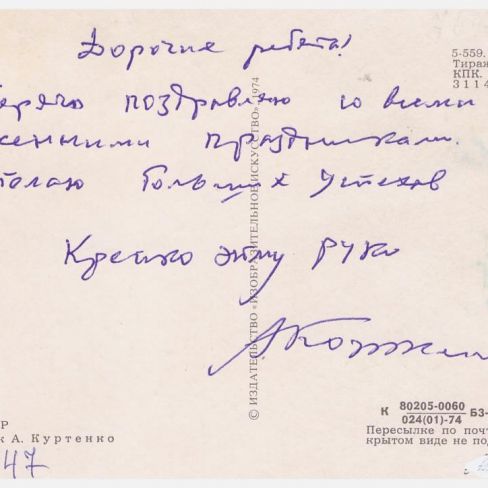 Дорогие ребята!
Горячо поздравляю со всеми
праздниками.
желаю больших успехов
Крепко жму руки
5-559.
Тираж
КПК.
3114
© ИЗДАТЕЛЬСТВО «ИЗОБРАЗИТЕЛЬНОЕ ИСКУССТВО», 1974
Р
к А. Куртенко
47
К 80205-0060 / 024(01)-74 Б3-
Пересылке по почт
крытом виде не под